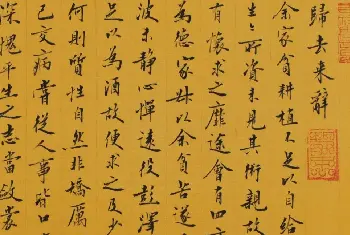 歸去來辭
余家貧耕植不足以自給
生生所資未見其術親故
有懷求之靡途會有四
為德家叔以余貧苦遂
波未靜心憚遠役彭澤
足以為酒故便求之及少
何則質性自然非矯厲
己交病嘗從人事皆口
深愧平生之志當斂裳